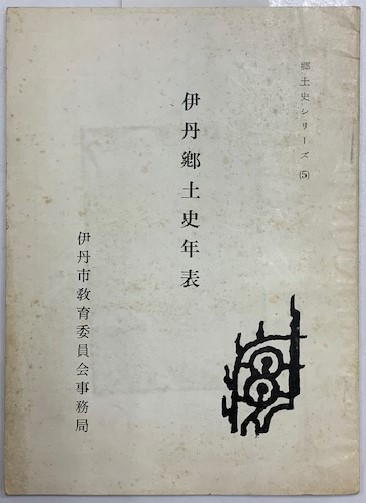 郷土史シリーズ(5)
伊丹郷土史年表
伊丹市教育委員会事務局